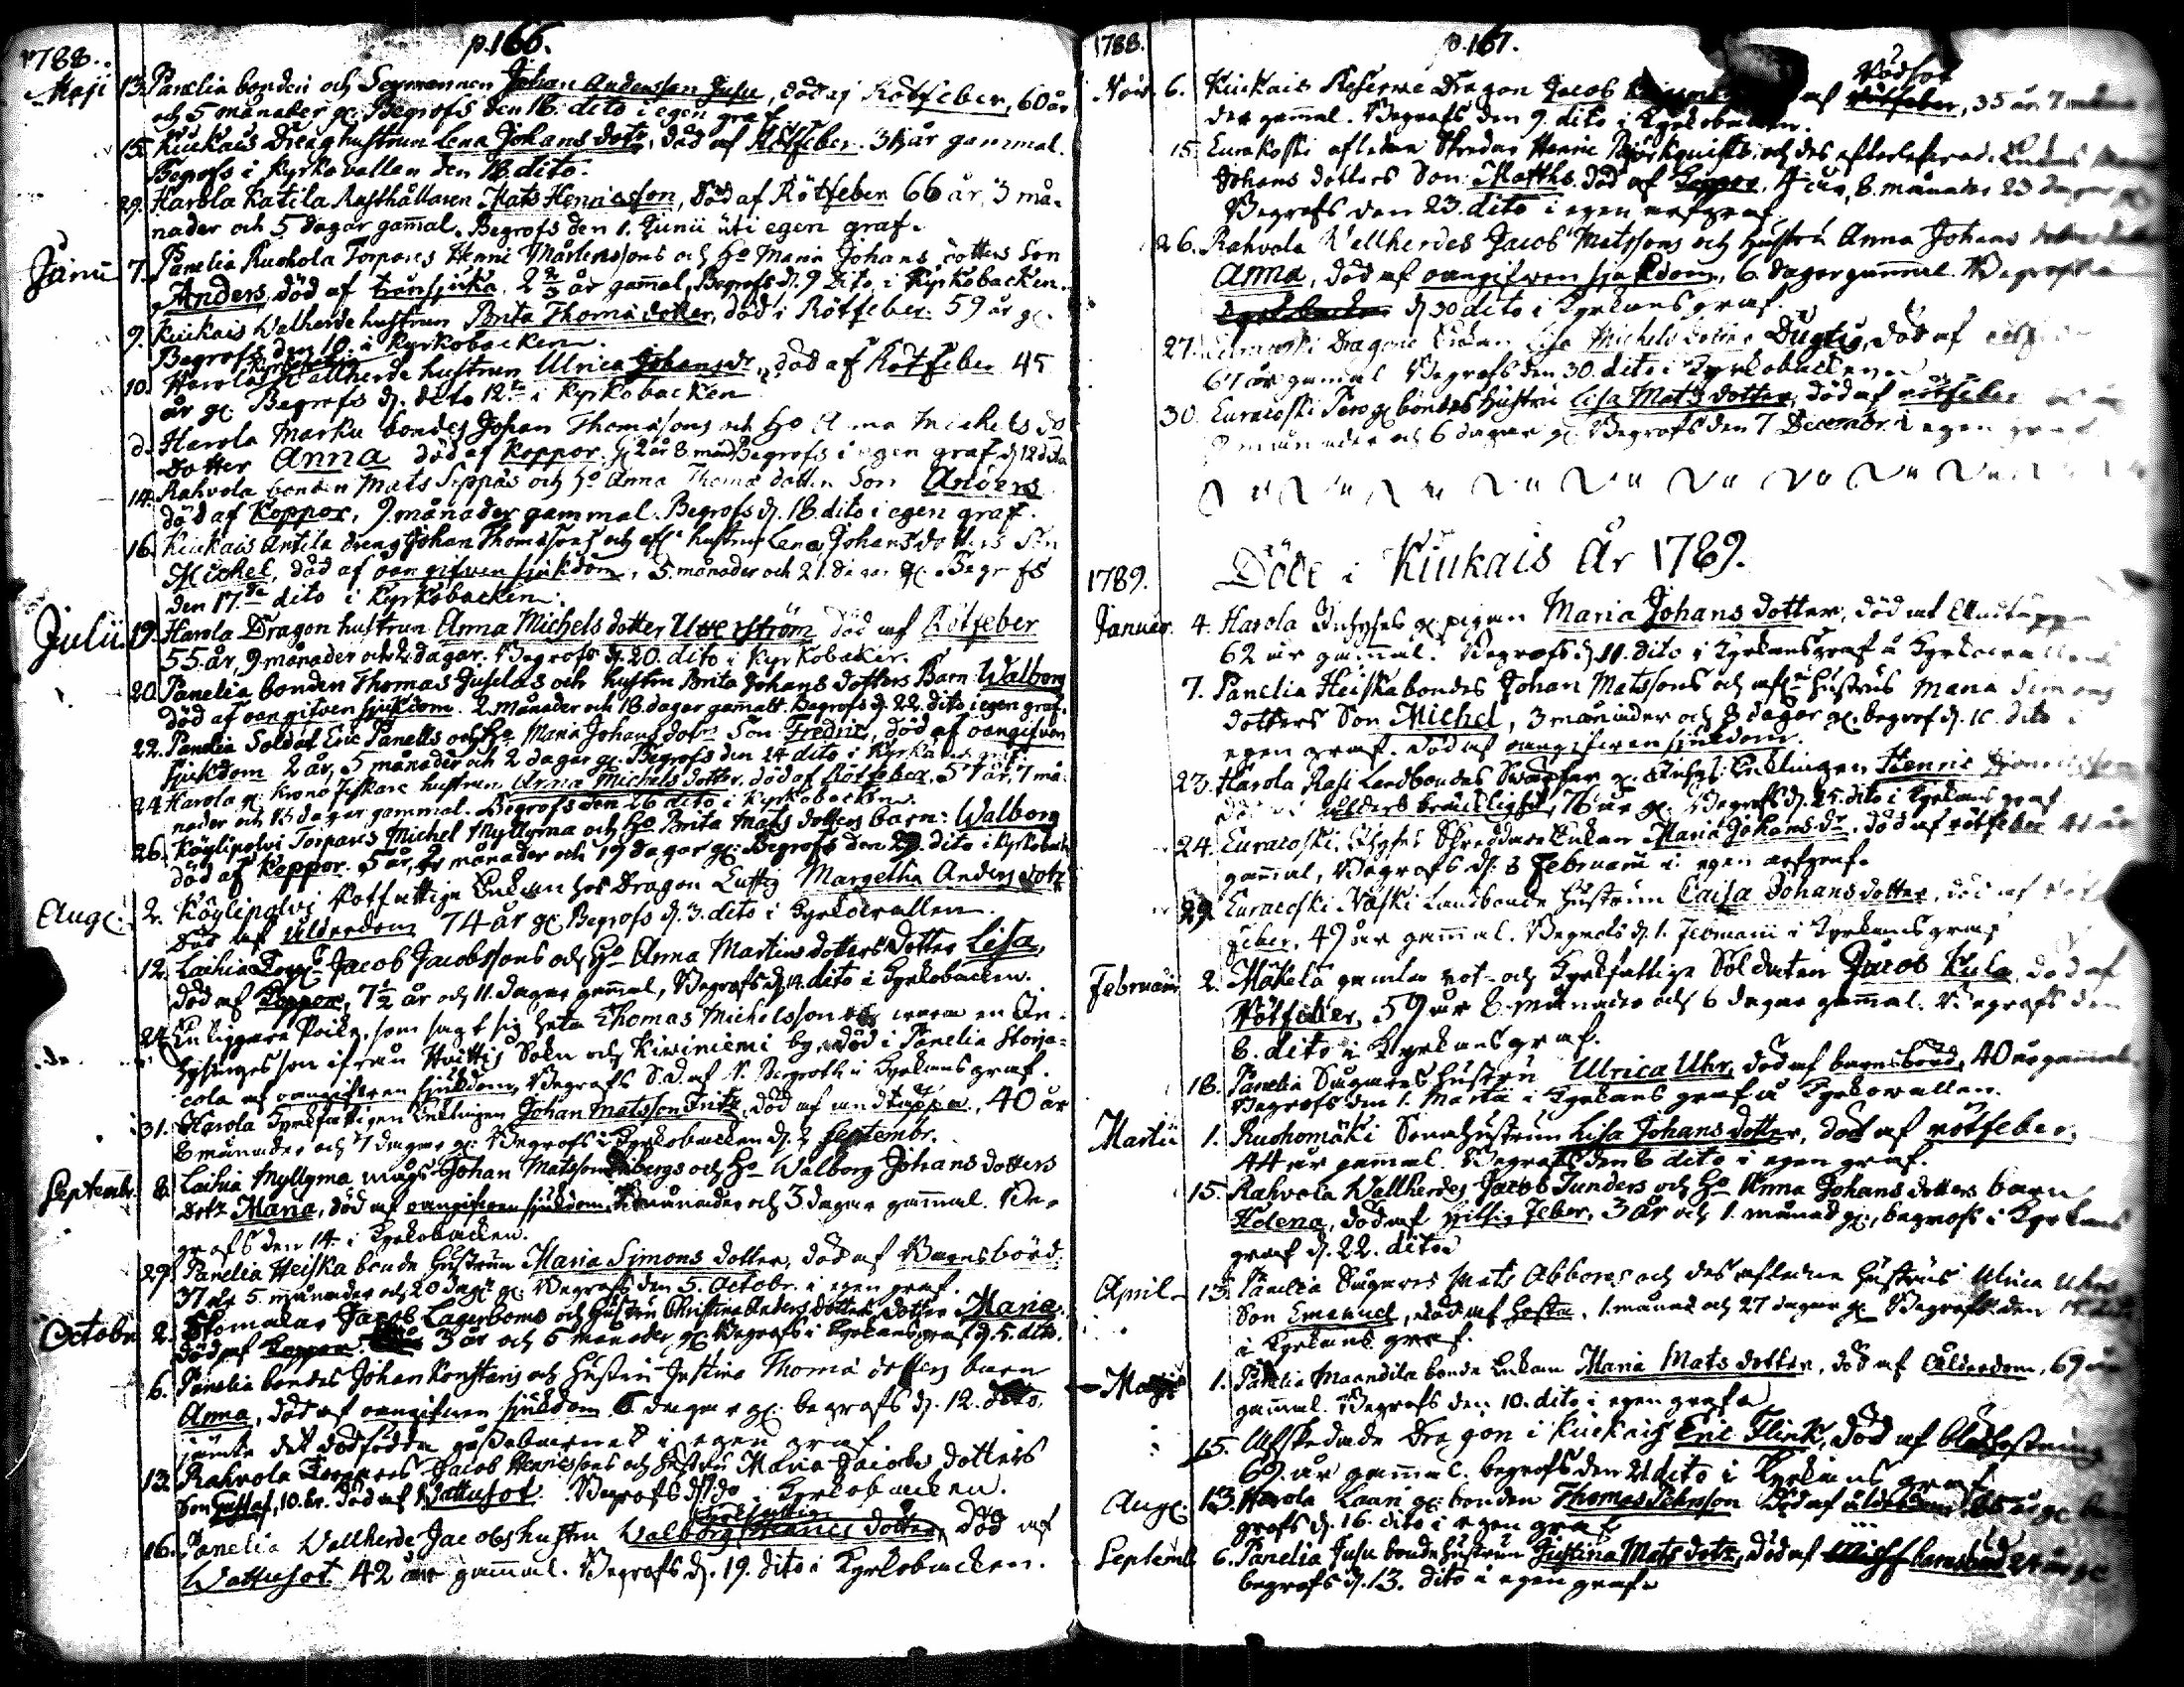 p.166.
1788.
Maji 13. Panelia bonden och Sexmannen Johan Andersson Jusu, död i Rötfeber, 60 år
och 5 månader gl. Begrofs den 18. dito i egen graf
15. Kiukais Dreng hustrun Lena Johans dotr, död af Rötfeber. 34 år gammal.
Begrofs i Kyrkovallen den 18. dito.
29. Harola Katila Rusthållaren Mats Henricsson, död af Rötfeber 66 år, 3 må-
nader och 5 dagar gamal. Begrofs den 1. Junii uti egen graf.
Junii 7. Panelia Ruohola Torpares Henric Mårtenssons och Ho Maria Johans dotters Son
Anders, död af transjuka. 2 2/3 år gamal, Begrofs d. 9 Dito i Kyrkobacken.
9. Kiukais Walherde hustrun Brita Thomä dotter, död i Rötfeber. 59 år gl.
Begrofs den 10. i Kyrkobacken.
10. Harola Wallherde hustrun Ulrica Johans dr, död af Rötfeber 45
år gl. Begrofs d. dito 12te i Kyrkobacken
d. Harola Marku bondes Johan Thomäsons och Ho Anna Michels do
dotter Anna död af Koppor. gl 2 år 8. mån. Begrofs i egen graf d. 12 dito
14. Rahvola bonden Mats Seppäs och Ho Anna Thomä dotters Son Anders
död af Koppor, 9. månader gammal. Begrofs d. 18. dito i egen graf.
16. Kiukais Antila dreng Johan Thomäsons och afl. hustrus Lena Johans dotters Son
Michel, död af oangifven sjukdom, 5. månader och 21. dagar gl. Begrofs
den 17.de dito i Kyrkobacken.
Julii 19. Harola Dragon hustrun Anna Michels dotter Utterström död af Rötfeber
55 år, 9 månader och 2 dagar. Begrofs d. 20. dito i Kyrkobacken.
20. Panelia bonden Thomas Juselas och hustru Brita Johans dotters Barn Walborg
död af oangifven sjukdom. 2 månader och 18. dagar gamalt. Begrofs d. 22. dito i egen graf.
22. Panelia Soldat Eric Panells och Ho Maria Johans dotrs Son Fredric, död af oangifven
sjukdom 2 år, 5 månader och 2 dagar gl. Begrofs den 24 dito i Kyrkans graf.
24. Harola gl. Krono fiskare hustrun Anna Michels dotter. död af Rötfeber. 57 år, 7 må-
nader och 13 dagar gammal. Begrofs den 26 dito i Kyrkobacken.
26. Köylipolvi Torpares Michel Myllyma och Ho Brita Mats dotters barn: Walborg
död af Koppor. 5 år, månader och 19 dagar gl. Begrofs den 29. dito i Kyrkobacken
Aug. 2. Köylipolvi Rotfattige Enkan hos Dragon Luttig Margetha Anders dotr
död af Ålderdom 74 år gl. Begrofs d. 3. dito i Kyrkovallen.
12. Laihia Torp. Jacob Jacobssons och Ho Anna Martins dotters Dotter Lisa,
död af Koppor, 7 1/2 år och 11. dagar gamal, Begrofs d. 14. dito i Kyrkobacken.
24. En tiggare Poike, som sagt sig heta Thomas Michelsson och wara en In-
hysinges son ifrån Hvittis Sokn och Kiviniemi by, död i Panelia Storja-
cola af oangifven sjukdom, Begrofs S. D. af N. Begroth i Kyrkans graf.
31. Harola Kyrkfattigen Enklingen Johan Matsson Frits, död af andtäppa, 40 år
8 månader och 7 dagar gl. Begrofs i Kyrkobacken d. 2 Septembr.
Septembr. 8. Laihia Myllyma mågs Johan Matsson bergs och Ho Walborg Johans dotters
dotr Maria, död af oangifven sjukdom, månader och 3 dagar gammal. Be-
grofs den 14 i Kyrkobacken.
29. Panelia Heiska bonde hustrun Maria Simons dotter, död af Barnsbörd.
37 år 5 månader och 20 dagr gl. Begrofs den 5. Octobr. i egen graf.
Octobr 2. Stomakar Jacob Lagerboms och hustru Christina Anders dotters dotter Maria,
död af Koppor. 3 år och 6 månader gl. Begrofs i Kyrkans graf d. 5. dito.
6. Panelia bondes Johan Konstens och hustru Justina Thomä dotters barn
Anna, död af oangifven sjukdom 6 dagar gl. begrofs d. 12. dito,
jämte det dödfödda gossebarnet i egen graf
13. Rahvola Torpares Jacob Henricssons och hustru Maria Jacobs dotters
Son Gustaf, 10. år. död af Wattusot. Begrofs d. do i Kyrkobacken.
16. Panelia Wallherde Jacobs hustru Walborg Henrics dotter, död af
Wattusot 42 år gammal. Begrofs d. 19. dito i Kyrkobacken.
p.167.
1788.
Nov. 6. Kiukais Reserve Dragon Jacob af Rödsot, 35 år 7 måna
der gamal. Begrofs den 9. dito i Kyrkobacken.
15. Euraåski afledne Skredar Henric Björkquists och des efterlefvande Enkas
Johans dotters Son Matths. död af Koppor, 4 år, 8. månader 23 dagar gl
Begrofs den 23. dito i egen arfgraf.
26. Rahvola Wallherdes Jacob Matssons och hustru Anna Johans
Anna, död af oangifven sjukdom, 6. dagar gammal Begrofs
d. 30 dito i Kyrkans graf.
27. Euraåski Dragons Enkan Lisa Michels dotter Dugtig, död af
61 år gamal Begrofs den 30. dito i Kyrkobacken
30. Euraåski Pero gl. bondes hustru Lisa Mats dotter, död af rötfeber
månader och 6 dagar gl. Begrofs den 7 Decembr. i egen graf
Döde i Kiukais År 1789.
1789.
Januar. 4. Harola Inhyses gl. pigan Maria Johans dotter, död af Andtäppa
62 år gammal. Begrofs d. 11. dito i Kyrkans graf å Kyrkovallen
7. Panelia Heiska bondes Johan Matssons och afl. hustrus Maria Simons
dotters Son Michel, 3 månader och 8 dagar gl. begrof d. 10. dito i
egen graf. död af oangifven sjukdom.
23. Harola Rasi Landbondes Swärfar gl. Inhys. Enklingen Henric
död af Ålders bräcklighet, 76 år gl. Begrofs d. 25. dito i Kyrkans graf
24. Euraåski. Inhyses Skreddare Enkan Maria Johans dr. död af rötfeber 41 år
gamal, Begrofs d. 8 Februarii i egen arfgraf.
29. Euraåski Naski Landbonde hustrun Caisa Johans dotter, död af röt
feber, 49 år gammal. Begrofs d. 1. Februarii i Kyrkans graf
Februarii 2. Mäkelä gamla rot- och Kyrkfattige Soldaten Jacob Kula död af
Rötfeber, 59 år 8. månader och 6 dagar gamal. Begrofs den
8. dito i Kyrkans graf.
18. Panelia Sugares hustru Ulrica Uhr, död af barnsbörd, 40 år gammal.
Begrofs den 1. Martii i Kyrkans graf å Kyrkovallen.
Martii 1. Ruohomäki Sonahustrun Lisa Johans dotter, död af rötfeber,
44 år gammal. Begrofs den 8 dito i egen graf.
15. Rahvola Wallherdes Jacob Tunders och Ho Anna Johans dotters barn
Helena, död af hittsig feber, 3 år och 1. månad gl., begrofs i Kyrkans
graf d. 22. dito
April. 13. Panelia Sugares Mats Abboros och des afledne hustrus Ulrica Uhrs
Son Emanuel, död af hosta. 1. månad och 27 dagar gl Begrofs den
i Kyrkans graf.
Maji 1. Panelia Maandila bonde Enkan Maria Mats dotter, död af Ålderdom, 69 år
gammal. Begrofs den 10. dito i egen graf
15. Afskedade Dragon i Kiukais Eric Flink, död af blodhostning
69. år gammal. begrofs den 21 dito i Kyrkans graf
Aug. 13. Harola Laari gl. bonden Thomas Johnsson död af ålderdom 85 år gl.
grofs d. 16. dito i egen graf
Septemb. 6. Panelia Jusu bonde hustrun Justina Mats dotr, död af barnsbörd 24 år gl
begrofs d. 13. dito i egen graf